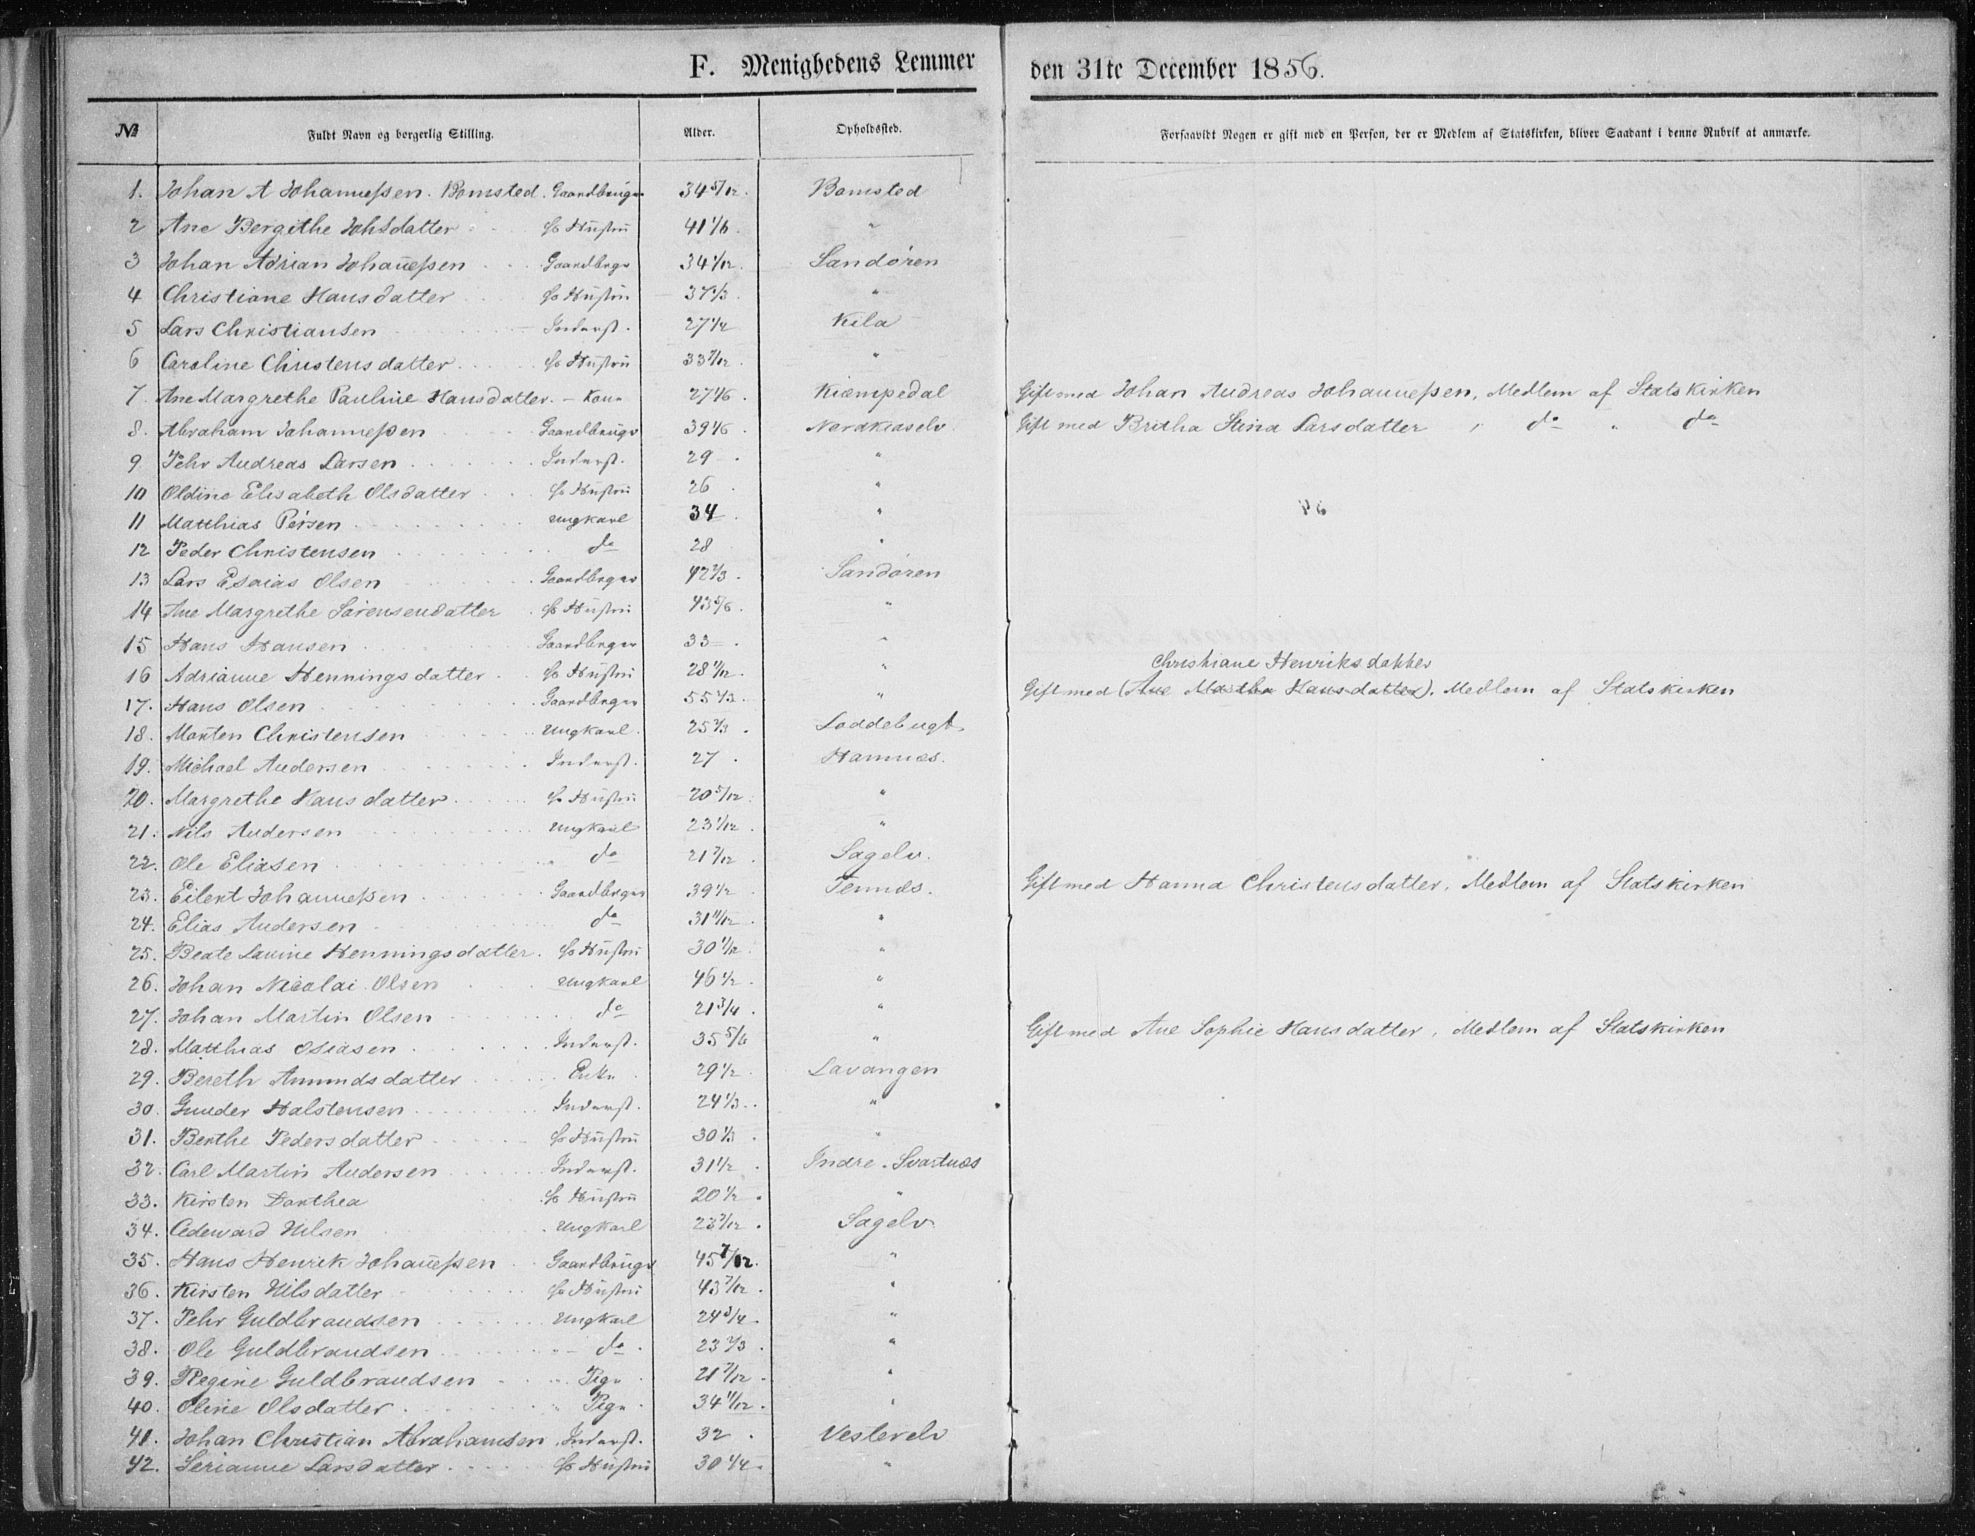 F. Menighedens Lemmer den 31te December 1856.
№ Fuldt Navn og borgerlig Stilling. Alder. Opholdssted. Forsaavidt Nogen er gift med en Person, der er Medlem af Statskirken, bliver Saadant i denne Rubrik at anmærke.
1. Johan A Johannessen. Bomsted. Gaardbruger 34 5/12. Bomsted
2 Ane Bergithe Johsdatter Hustru 41 1/6. "
3 Johan Adrian Johanessen Gaardbrgr 34 1/12. Sandøren
4 Christiane Hansdatter Hustru "
5 Lars Christiansen Inderst. 27 1/2 Kila
6 Caroline Christensdatter Hustru 33 7/12. "
7. Ane Margrethe Pauline Hansdatter. - Kone Kiempedal Gift med Johan Andreas Johannessen, Medlem af Statskirken
8. Abraham Johannessen Gaardbrugr Nordkiøselv. Gift med Britha Stina Larsdatter " do " do
9 Pehr Andreas Larsen Inderst. 29 . "
10 Oldine Elisabeth Olsdatter Hustru 26 . "
11 Matthias Persen Ungkarl 34 . "
12 Peder Christensen do 28 "
13 Lars Esaias Olsen Gaardbrger 42 2/3. Sandøren
14 Ane Margrethe Sørensendatter . Hustru 43 5/6. "
15 Hans Hansen Gaardbrger 33 . "
16 Adrianne Henningsdatter Hustru 28 1/12. "
Christiane Henriksdatter
17. Hans Olsen Gaardbrger 55 1/3. " Gift med (Ane Martha Hansdatter), Medlem af Statskirken
18. Morten Christensen Ungkarl. 25 2/3 . Loddebugt
19. Michael Andersen Inderst. 27 . Hamnæs.
20. Margrethe Hansdatter Hustru 20 5/12. "
21. Nils Andersen Ungkarl 23 1/12. "
22. Ole Eliasen do 21 7/12. Sagelv.
23. Eilert Johannessen Gaardbrger 39 1/2. Tennæs. Gift med Hanna Christensdatter, Medlem af Statskirken
24. Elias Andersen do 31 11/12. "
25. Beate Lauine Henningsdatter. Hustru 30 1/12. "
26. Johan Nicolai Olsen Ungkarl 46 1/2. "
27. Johan Martin Olsen do 21 3/4 . "
28. Matthias Osiasen Inderst. 35 5/6 " Gift med Ane Sophie Hansdatter, Medlem af Statskirken
29. Bereth Amundsdatter Enke 29 1/2. Lavangen
30. Gunder Halstensen Inderst. 24 1/3. "
31. Berthe Pedersdatter Hustru 30 1/3 . "
32. Carl Martin Andersen Inderst. 31 1/2 . Indre-Svartnæs
33. Kirsten Dorthea Hustru 20 1/2 . "
34. Cedeward Nilsen Ungkarl 23 7/12 . Sagelv.
35. Hans Henrik Johanessen Gaardbrugr 45 7/12. "
36. Kirsten Nilsdatter Hustru 43 7/12. "
37. Pehr Guldbrandsen Ungkarl 24 3/4. "
38. Ole Guldbrandsen do . 23 2/3. "
39. Regine Guldbrandsen Pige 21 7/12. "
40. Oline Olsdatter Pige 34 11/12. "
41. Johan Christian Abrahamsen Inderst. 32 . Vesterelv
42. Serianne Larsdatter Hustru 30 1/4. "